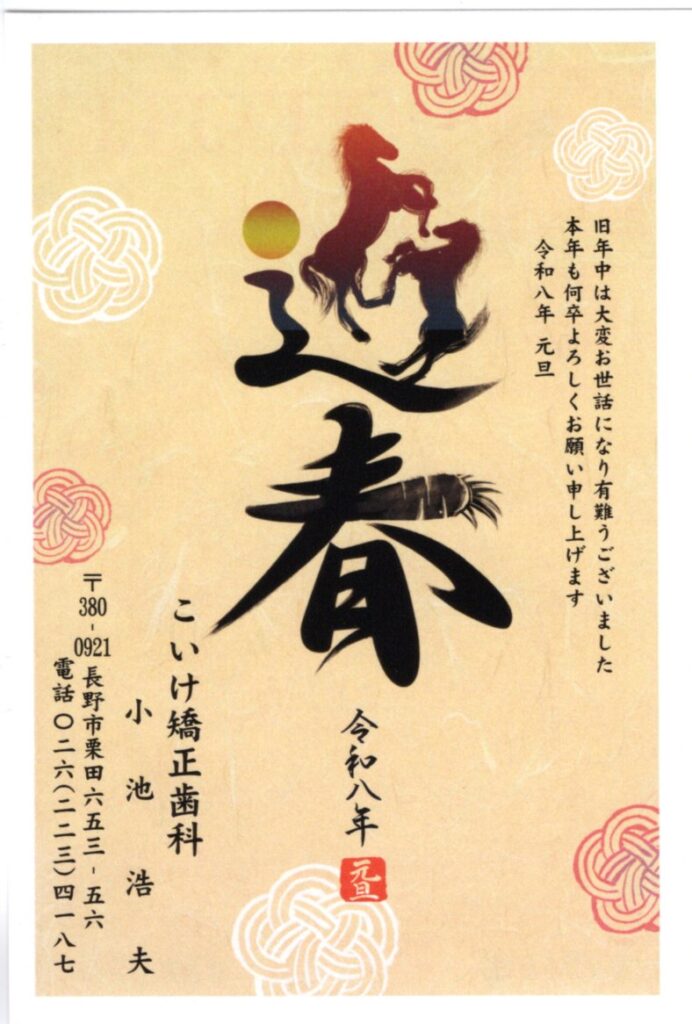 迎春
令和八年
元旦
旧年中は大変お世話になり有難うございました
本年も何卒よろしくお願い申し上げます
令和八年 元旦
こいけ矯正歯科
小池浩夫
〒380-0921 長野市栗田六五三-五六
電話〇二六(二二三)四一八七